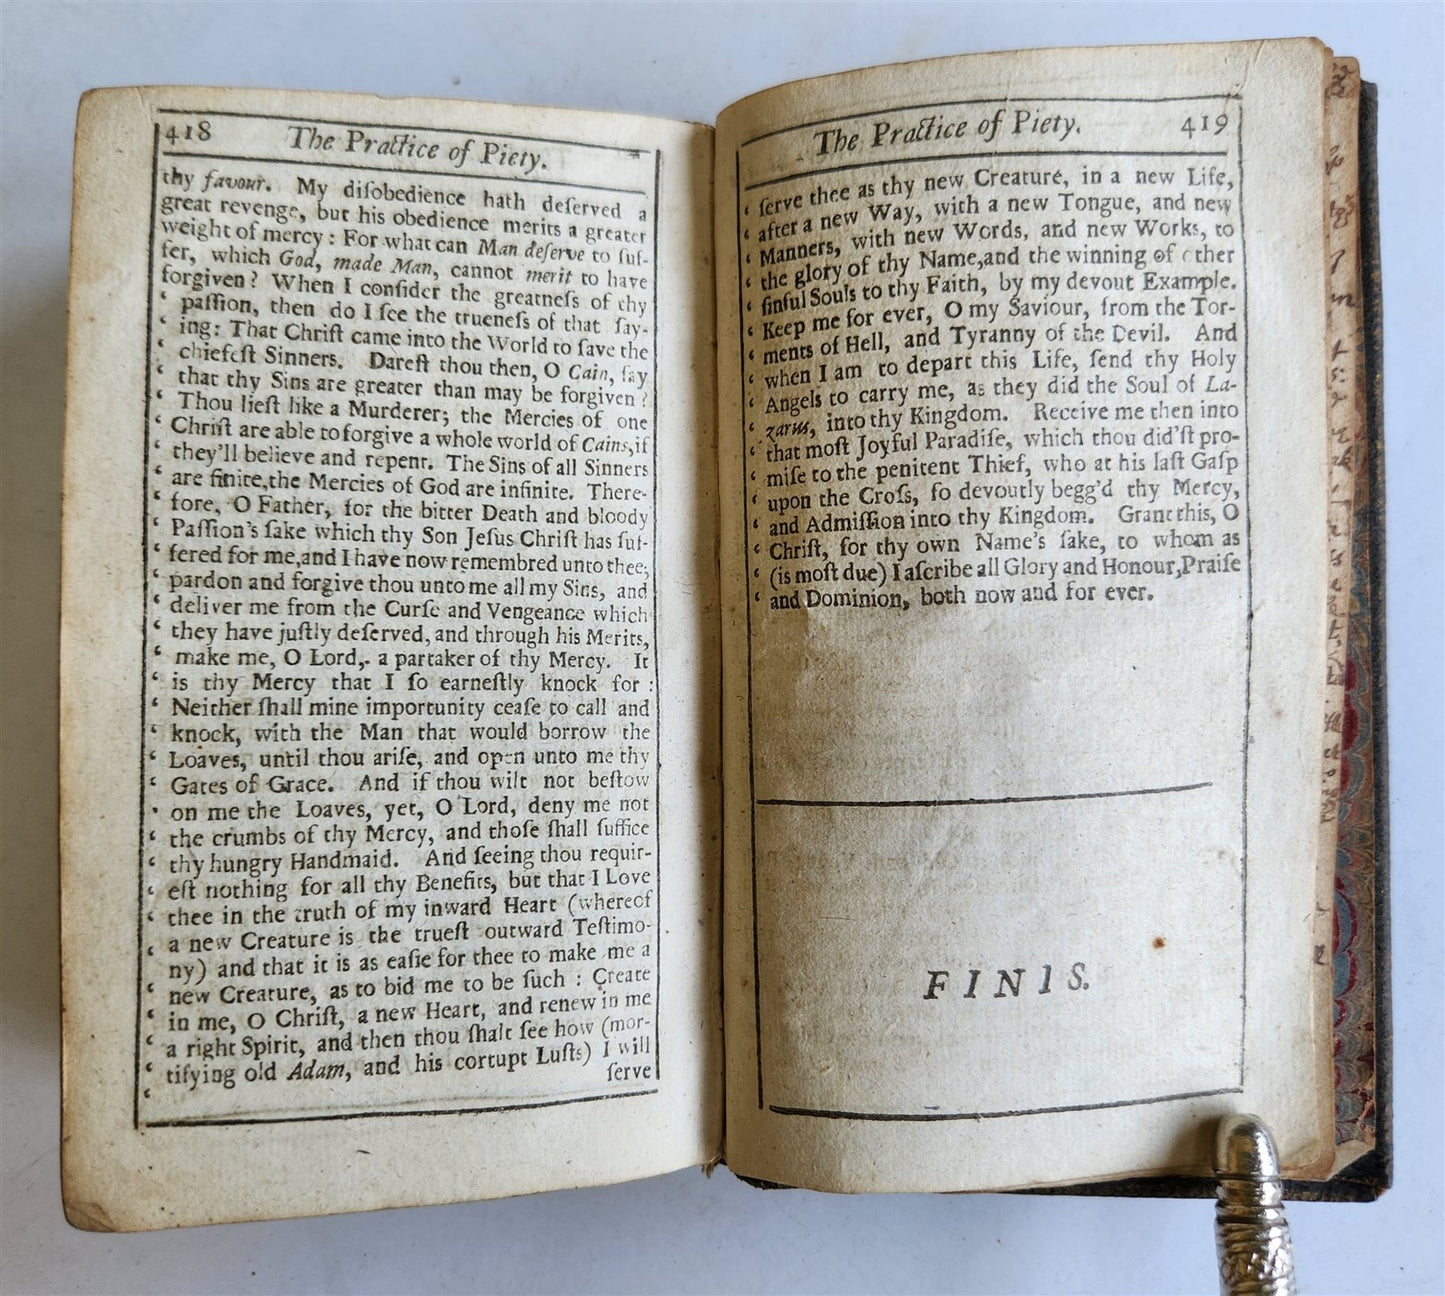 418 The Practice of Piety.
thy favour. My diſobedience hath deſerved a
great revenge, but his obedience merits a greater
weight of mercy : For what can Man deſerve to ſuf-
fer, which God, made Man, cannot merit to have
forgiven? When I conſider the greatneſs of thy
‘ paſſion, then do I ſee the trueneſs of that ſay-
‘ ing: That Chriſt came into the World to ſave the
‘ chiefeſt Sinners. Dareſt thou then, O Cain, ſay
‘ that thy Sins are greater than may be forgiven?
‘ Thou lieſt like a Murderer; the Mercies of one
‘ Chriſt are able to forgive a whole world of Cains, if
‘ they'll believe and repent. The Sins of all Sinners
‘ are finite, the Mercies of God are infinite. There-
‘ fore, O Father, for the bitter Death and bloody
‘ Paſſion's ſake which thy Son Jeſus Chriſt has ſuf-
‘ fered for me, and I have now remembred unto thee;
‘ pardon and forgive thou unto me all my Sins, and
‘ deliver me from the Curſe and Vengeance which
‘ they have juſtly deſerved, and through his Merits,
‘ make me, O Lord, a partaker of thy Mercy. It
‘ is thy Mercy that I ſo earneſtly knock for :
‘ Neither ſhall mine importunity ceaſe to call and
‘ knock, with the Man that would borrow the
‘ Loaves, until thou ariſe, and open unto me thy
‘ Gates of Grace. And if thou wilt not beſtow
‘ on me the Loaves, yet, O Lord, deny me not
‘ the crumbs of thy Mercy, and thoſe ſhall ſuffice
‘ thy hungry Handmaid. And ſeeing thou requir-
‘ eſt nothing for all thy Benefits, but that I Love
‘ thee in the truth of my inward Heart (whereof
‘ a new Creature is the trueſt outward Teſtimo-
‘ ny) and that it is as eaſie for thee to make me a
‘ new Creature, as to bid me to be ſuch : Create
‘ in me, O Chriſt, a new Heart, and renew in me
‘ a right Spirit, and then thou ſhalt ſee how (mor-
‘ tifying old Adam, and his corrupt Luſts) I will
ſerve
The Practice of Piety. 419
‘ ſerve thee as thy new Creature, in a new Life,
‘ after a new Way, with a new Tongue, and new
‘ Manners, with new Words, and new Works, to
‘ the glory of thy Name, and the winning of other
‘ ſinful Souls to thy Faith, by my devout Example.
‘ Keep me for ever, O my Saviour, from the Tor-
‘ ments of Hell, and Tyranny of the Devil. And
‘ when I am to depart this Life, ſend thy Holy
‘ Angels to carry me, as they did the Soul of La-
‘ zarus, into thy Kingdom. Receive me then into
‘ that moſt Joyful Paradiſe, which thou did'ſt pro-
‘ miſe to the penitent Thief, who at his laſt Gaſp
‘ upon the Croſs, ſo devoutly begg'd thy Mercy,
‘ and Admiſſion into thy Kingdom. Grant this, O
‘ Chriſt, for thy own Name's ſake, to whom as
‘ (is moſt due) I aſcribe all Glory and Honour, Praiſe
‘ and Dominion, both now and for ever.
FINIS.